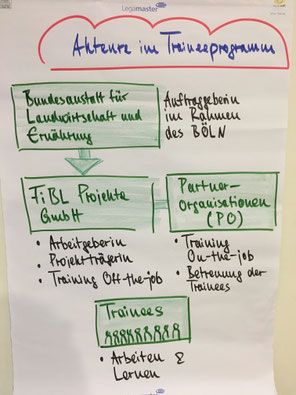 Legamaster
Akteure im Traineeprogramm
Bundesanstalt für
Landwirtschaft und
Ernährung
Auftraggeberin
im Rahmen
des BÖLN
FiBL Projekte
GmbH
• Arbeitgeberin
• Projektträgerin
• Training Off-the-job
Partner-
organisationen
(PO)
• Training
On-the-job
• Betreuung der
Trainees
Trainees
• Arbeiten &
Lernen